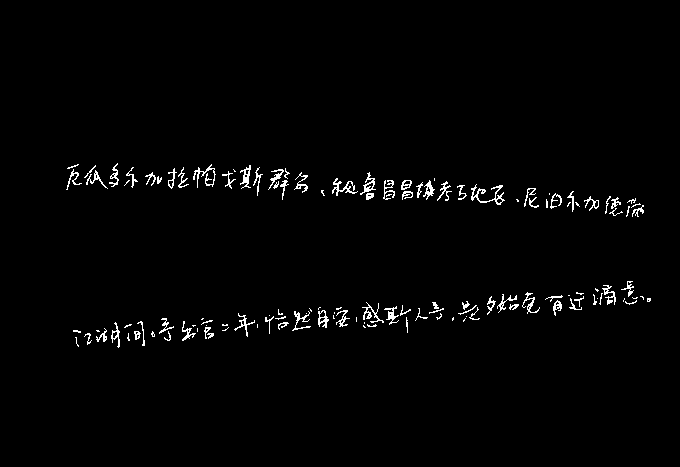 厄瓜多尔加拉帕戈斯群岛、秘鲁昌昌城考古地区、尼泊尔加德满
江湖间。予出官二年,恬然自安,感斯人言,是夕始觉有迁谪意。